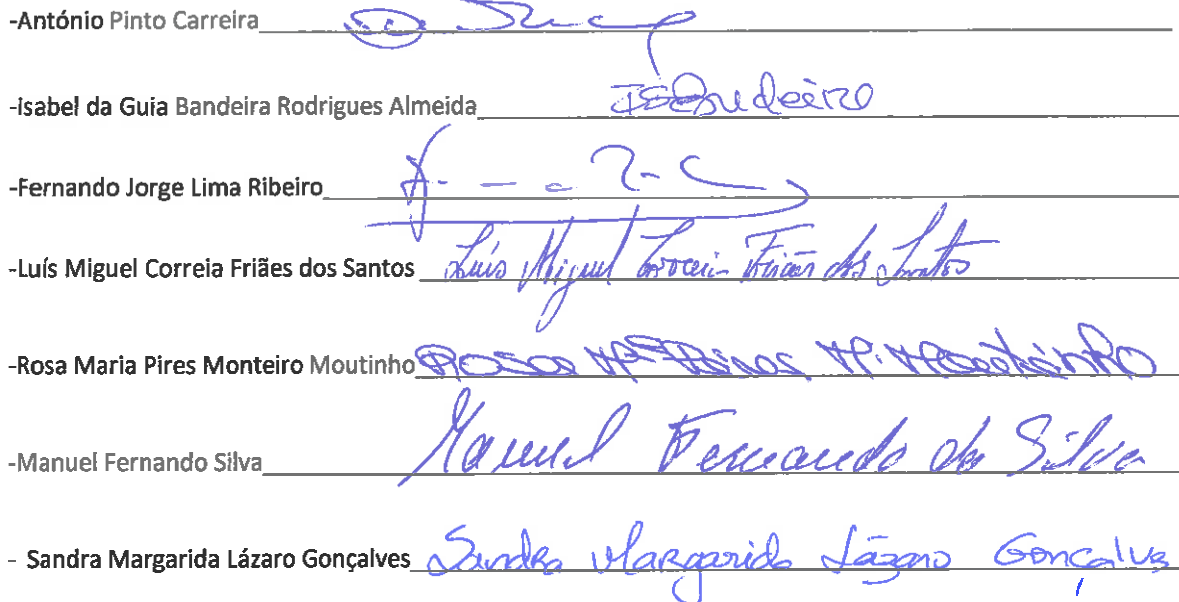 -António Pinto Carreira
-Isabel da Guia Bandeira Rodrigues Almeida
-Fernando Jorge Lima Ribeiro
-Luís Miguel Correia Friães dos Santos Luís Miguel Correia Friães dos Santos
-Rosa Maria Pires Monteiro Moutinho Rosa Mª Pires M. Moutinho
-Manuel Fernando Silva Manuel Fernando da Silva
- Sandra Margarida Lázaro Gonçalves Sandra Margarida Lázaro Gonçalves